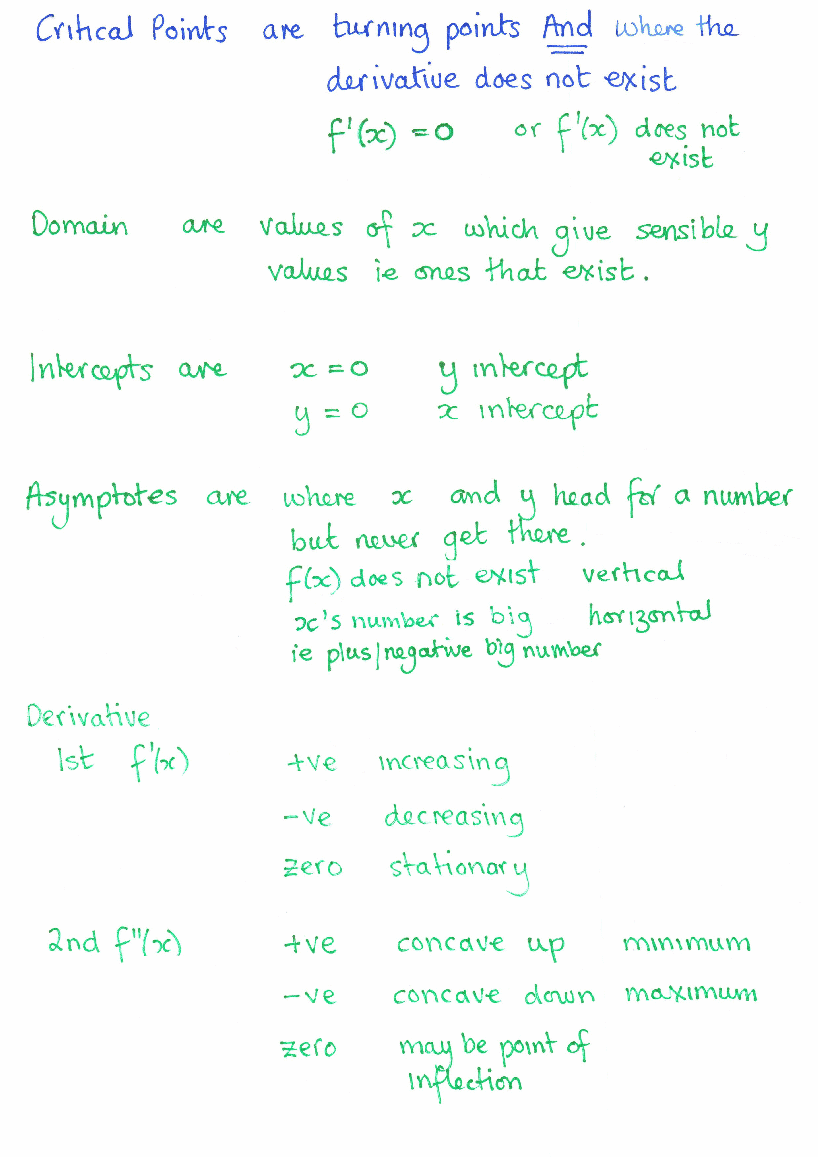 Critical Points are turning points And where the
derivative does not exist
f'(x) = 0 or f'(x) does not
exist
Domain are values of x which give sensible y
values ie ones that exist.
Intercepts are x = 0 y intercept
y = 0 x intercept
Asymptotes are where x and y head for a number
but never get there.
f(x) does not exist vertical
x's number is big horizontal
ie plus/negative big number
Derivative
1st f'(x) +ve increasing
-ve decreasing
zero stationary
2nd f"(x) +ve concave up minimum
-ve concave down maximum
zero may be point of
inflection